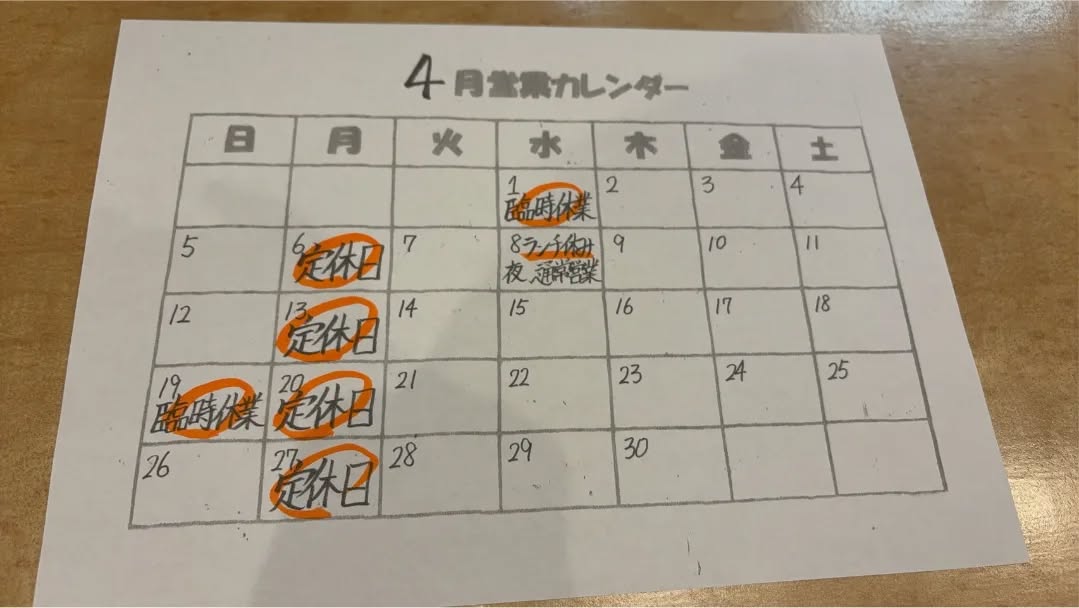 4月営業カレンダー
日 月 火 水 木 金 土
1 2 3 4
臨時休業
5 6 7 8 ランチ休み 9 10 11
定休日 夜、通常営業
12 13 14 15 16 17 18
定休日
19 20 21 22 23 24 25
臨時休業 定休日
26 27 28 29 30
定休日